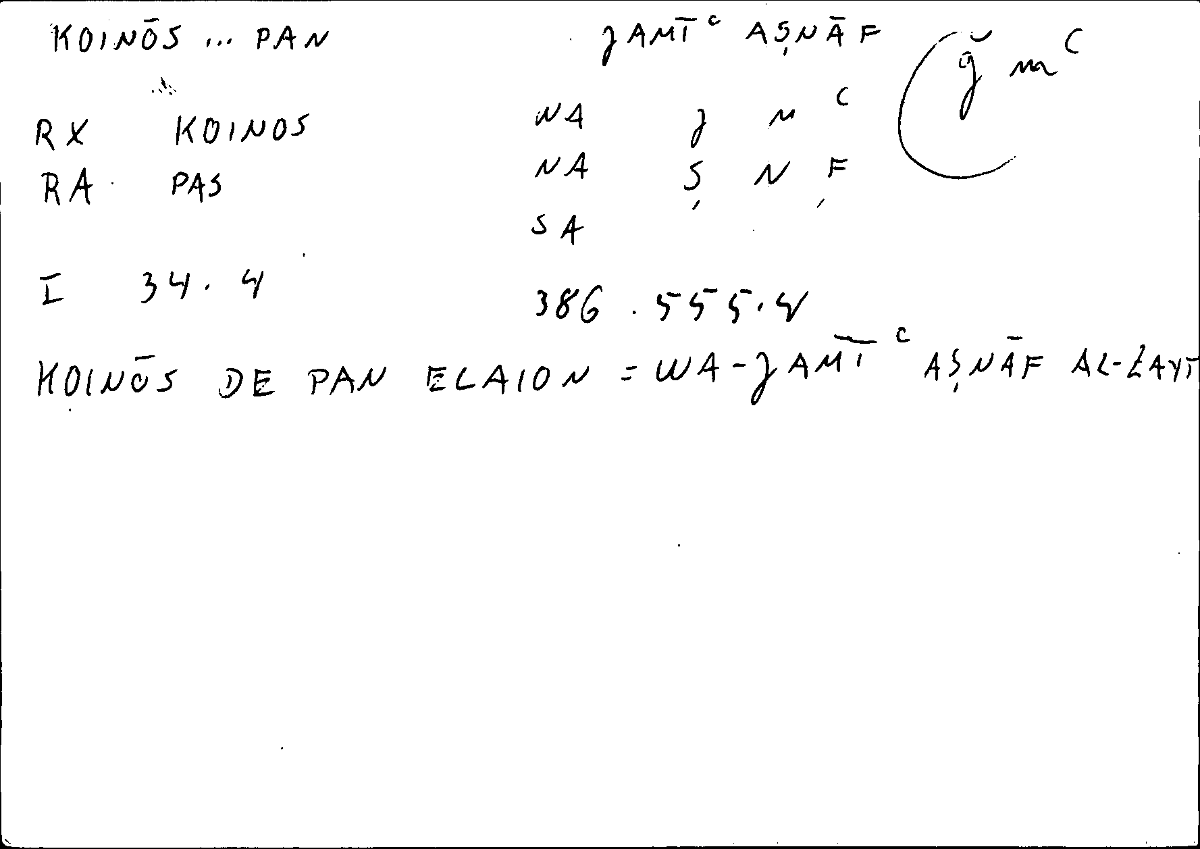 KOINŌS ... PAN JAMĪᶜ AṢNĀF
ǧ mᶜ
RX KOINOS NA J M ᶜ
RA PAS NA Ṣ N F
SA
I 34.4 386.555.4
KOINŌS DE PAN ELAION = WA-JAMĪᶜ AṢNĀF AL-ZAYT